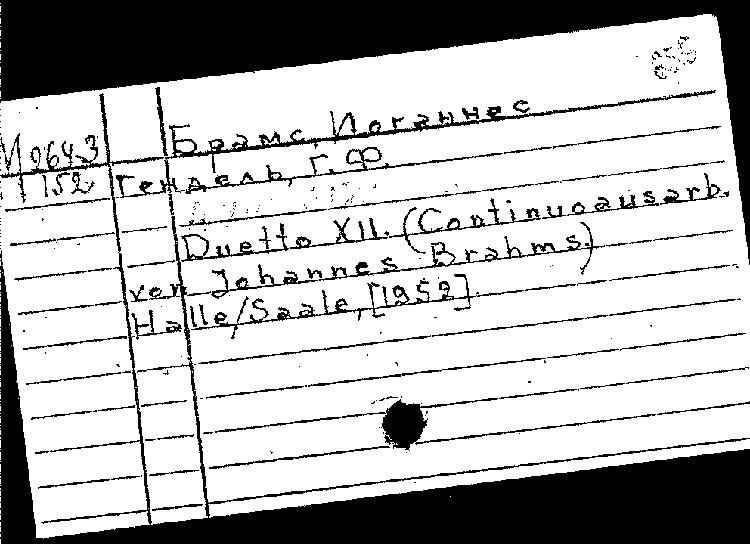 Брамс, Иоганнес
И 2643
152
Гендель, Г. Ф.
Duetto XII. (Continuoausarb.
von Johannes Brahms.)
Halle/Saale, [1952].